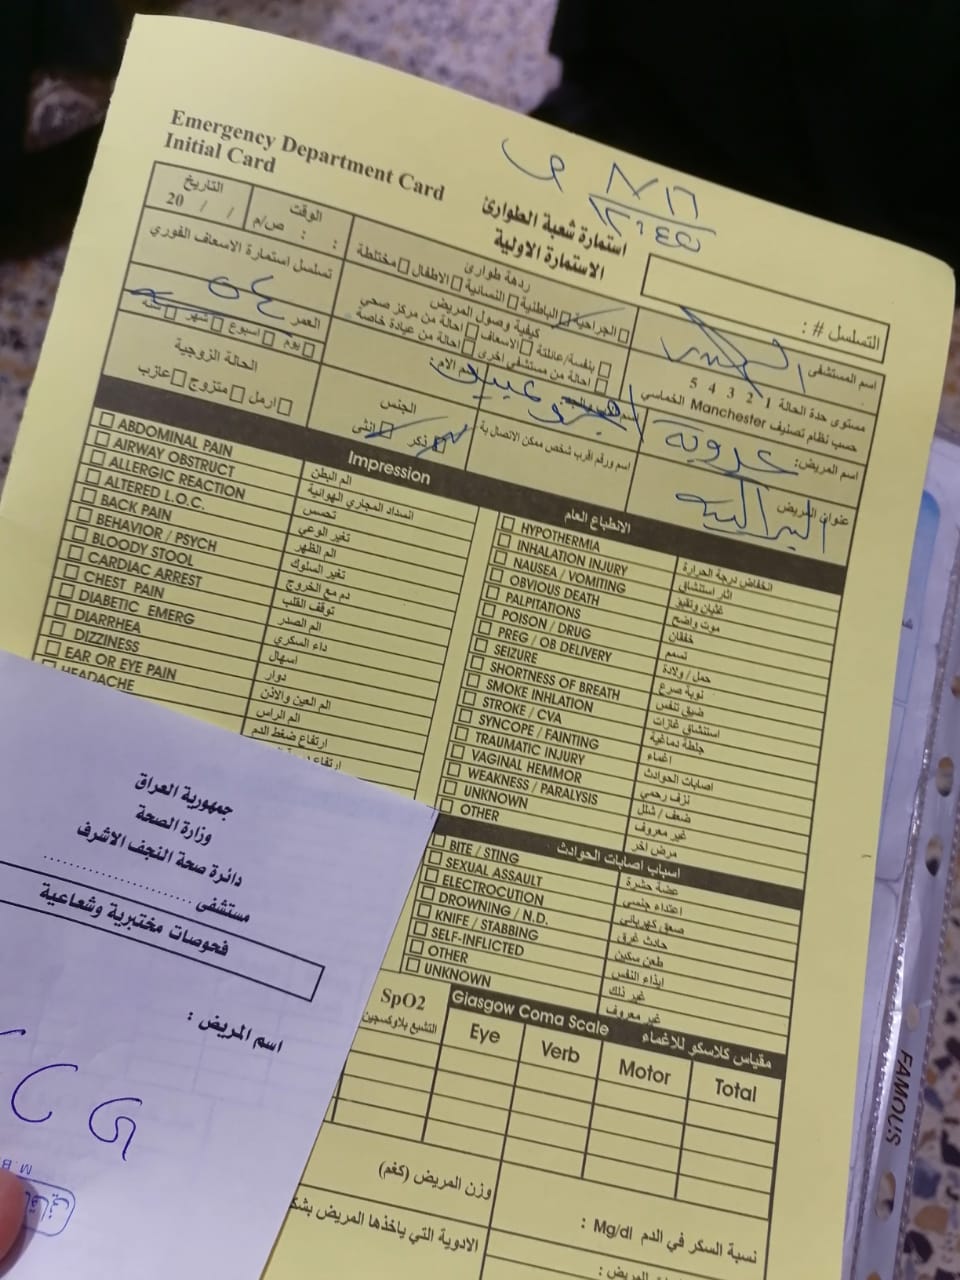 Emergency Department Card
Initial Card
استمارة شعبة الطوارئ
الاستمارة الاولية
التاريخ
/ / 20
الوقت
: : ص/م
تسلسل استمارة الاسعاف الفوري
ردهة طوارئ
الجراحية الباطنية النسائية الاطفال مختلطة
كيفية وصول المريض
بنفسة/عائلتة الاسعاف احالة من مركز صحي
احالة من مستشفى اخرى احالة من عيادة خاصة
التسلسل # :
اسم المستشفى
مستوى حدة الحالة 1 2 3 4 5
حسب نظام تصنيف Manchester الخماسي
العمر ٥٤
يوم اسبوع شهر سنة
الحالة الزوجية
ارمل متزوج عازب
الجنس
ذكر انثى
اسم ورقم اقرب شخص ممكن الاتصال بة
اسم المريض:
عنوان المريض
Impression
الانطباع العام
ABDOMINAL PAIN الم البطن
AIRWAY OBSTRUCT انسداد المجاري الهوائية
ALLERGIC REACTION تحسس
ALTERED L.O.C. تغير الوعي
BACK PAIN الم الظهر
BEHAVIOR / PSYCH تغير السلوك
BLOODY STOOL دم مع الخروج
CARDIAC ARREST توقف القلب
CHEST PAIN الم الصدر
DIABETIC EMERG داء السكري
DIARRHEA اسهال
DIZZINESS دوار
EAR OR EYE PAIN الم العين والأذن
HEADACHE الم الراس
ارتفاع ضغط الدم
HYPOTHERMIA انخفاض درجة الحرارة
INHALATION INJURY اثار استنشاق
NAUSEA / VOMITING غثيان وتقيؤ
OBVIOUS DEATH موت واضح
PALPITATIONS خفقان
POISON / DRUG تسمم
PREG / OB DELIVERY حمل / ولادة
SEIZURE نوبة صرع
SHORTNESS OF BREATH ضيق تنفس
SMOKE INHLATION استنشاق غازات
STROKE / CVA جلطة دماغية
SYNCOPE / FAINTING اغماء
TRAUMATIC INJURY اصابات الحوادث
VAGINAL HEMMOR نزف رحمي
WEAKNESS / PARALYSIS ضعف / شلل
UNKNOWN غير معروف
OTHER مرض اخر
اسباب اصابات الحوادث
BITE / STING عضة حشرة
SEXUAL ASSAULT اعتداء جنسي
ELECTROCUTION صعق كهربائي
DROWNING / N.D. حادث غرق
KNIFE / STABBING طعن سكين
SELF-INFLICTED ايذاء النفس
OTHER غير ذلك
UNKNOWN غير معروف
SpO2
التشبع بلاوكسجين
Glasgow Coma Scale مقياس كلاسكو للاغماء
Eye Verb Motor Total
وزن المريض (كغم)
نسبة السكر في الدم Mg/dl :
الادوية التي ياخذها المريض بشك
جمهورية العراق
وزارة الصحة
دائرة صحة النجف الاشرف
مستشفى ....................
فحوصات مختبرية وشعاعية
اسم المريض :
FAMOUS